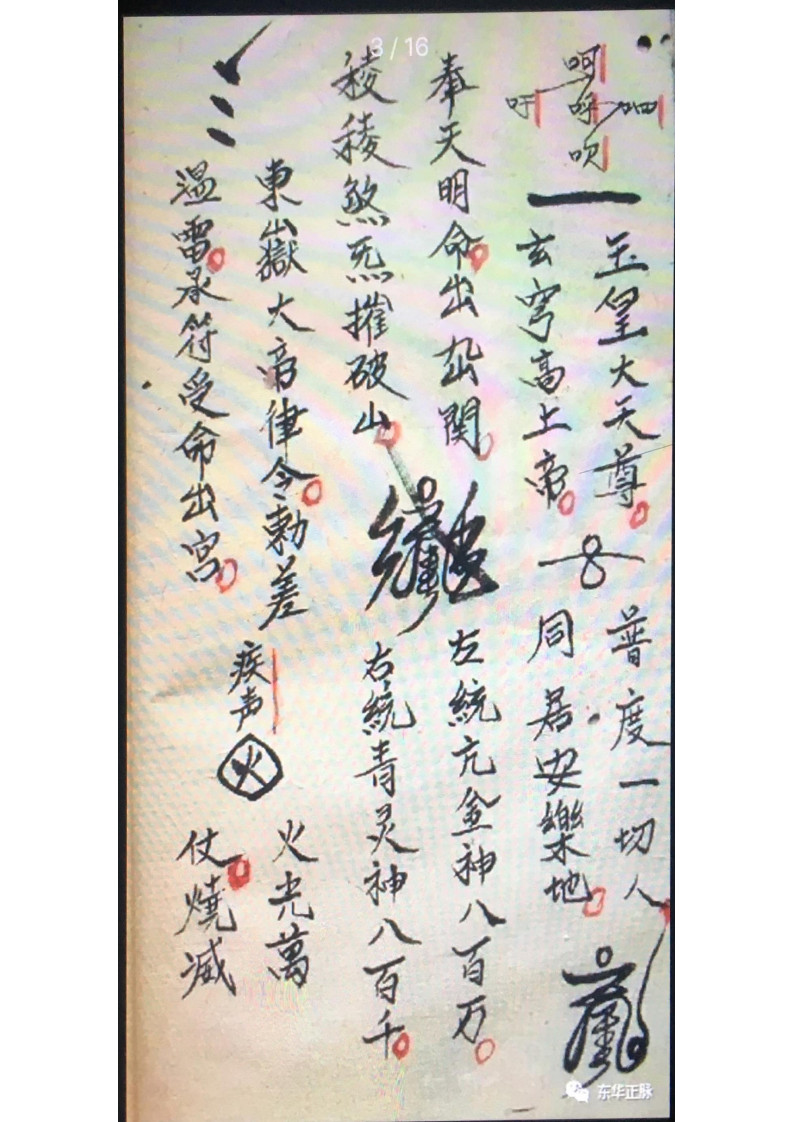 3 / 16
呵
吁 呼 呬
吹
玉皇大天尊
玄穹高上帝
普度一切人
同居安樂地
奉天明命出
関
左統亢金神八百万
右統青灵神八百千
稜稜煞炁摧破山
東山嶽大帝律令勅差
疾声
火
火光萬
仗燒滅
温雷承符受命出宮
东华正脉